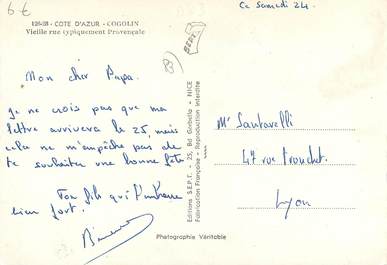 6 €
126-28 - COTE D'AZUR - COGOLIN
Vieille rue typiquement Provençale
Ce Samedi 24.
Mon cher Papa.
Je ne crois pas que ma
lettre arrivera le 25, mais
cela ne m'empêche pas de
te souhaiter une bonne fête
Ton fils qui t'embrasse
bien fort.
Photographie Véritable
Editions S.E.P.T. - 25, Bd Gorbella - NICE
Fabrication Française - Reproduction Interdite
Mr Santovelli
47 rue Tronchet.
Lyon